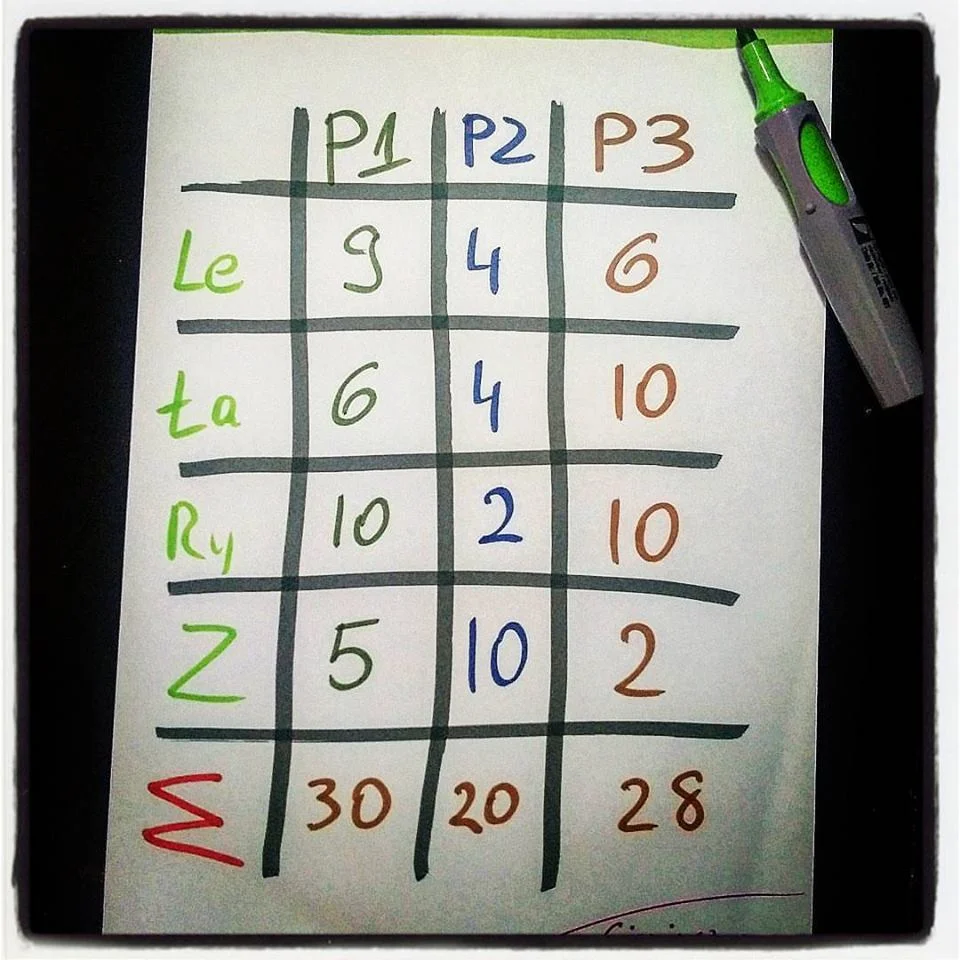 P1 P2 P3
Le 9 4 6
ta 6 4 10
Ry 10 2 10
Z 5 10 2
Σ 30 20 28